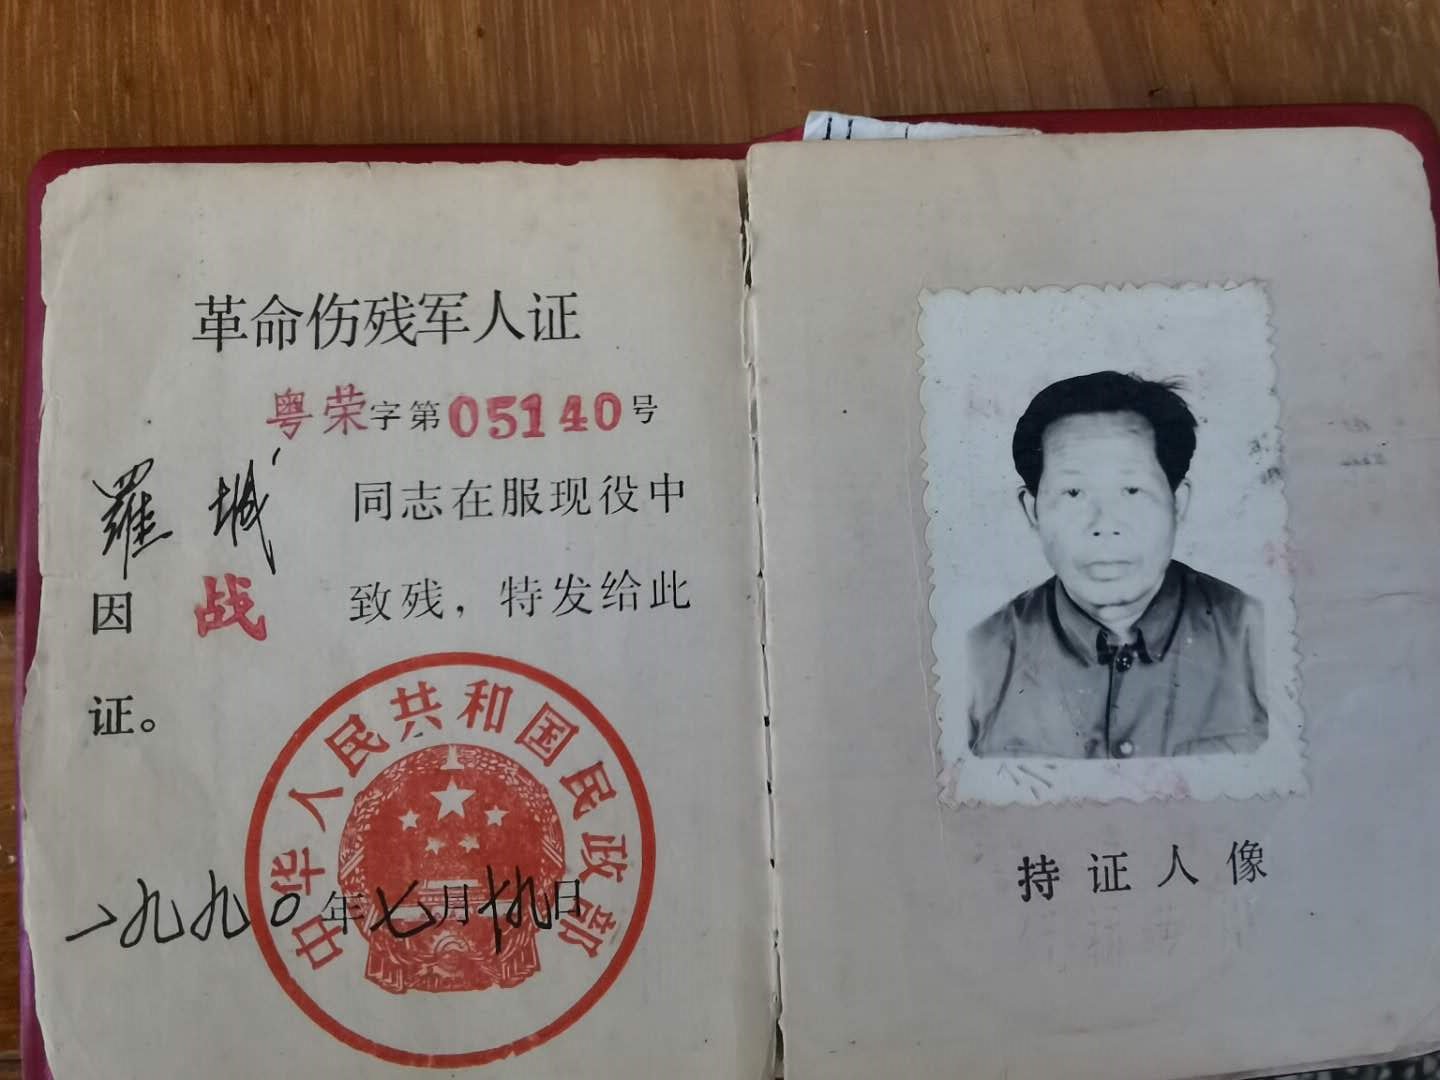 革命伤残军人证
粤荣字第05140号
羅城 同志在服现役中
因 战 致残，特发给此
证。
中华人民共和国民政部
一九九〇年七月十九日
持证人像